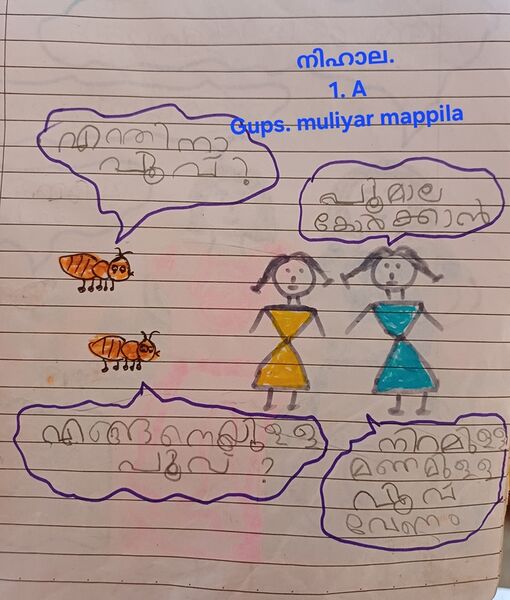 നിഹാല.
1. A
Gups. muliyar mappila
എന്തിനാ
പൂവ്?
പൂമാല
കോർക്കാൻ
എങ്ങനെയുള്ള
പൂവ് ?
നിറമുള്ള
മണമുള്ള
പൂവ്
വേണം